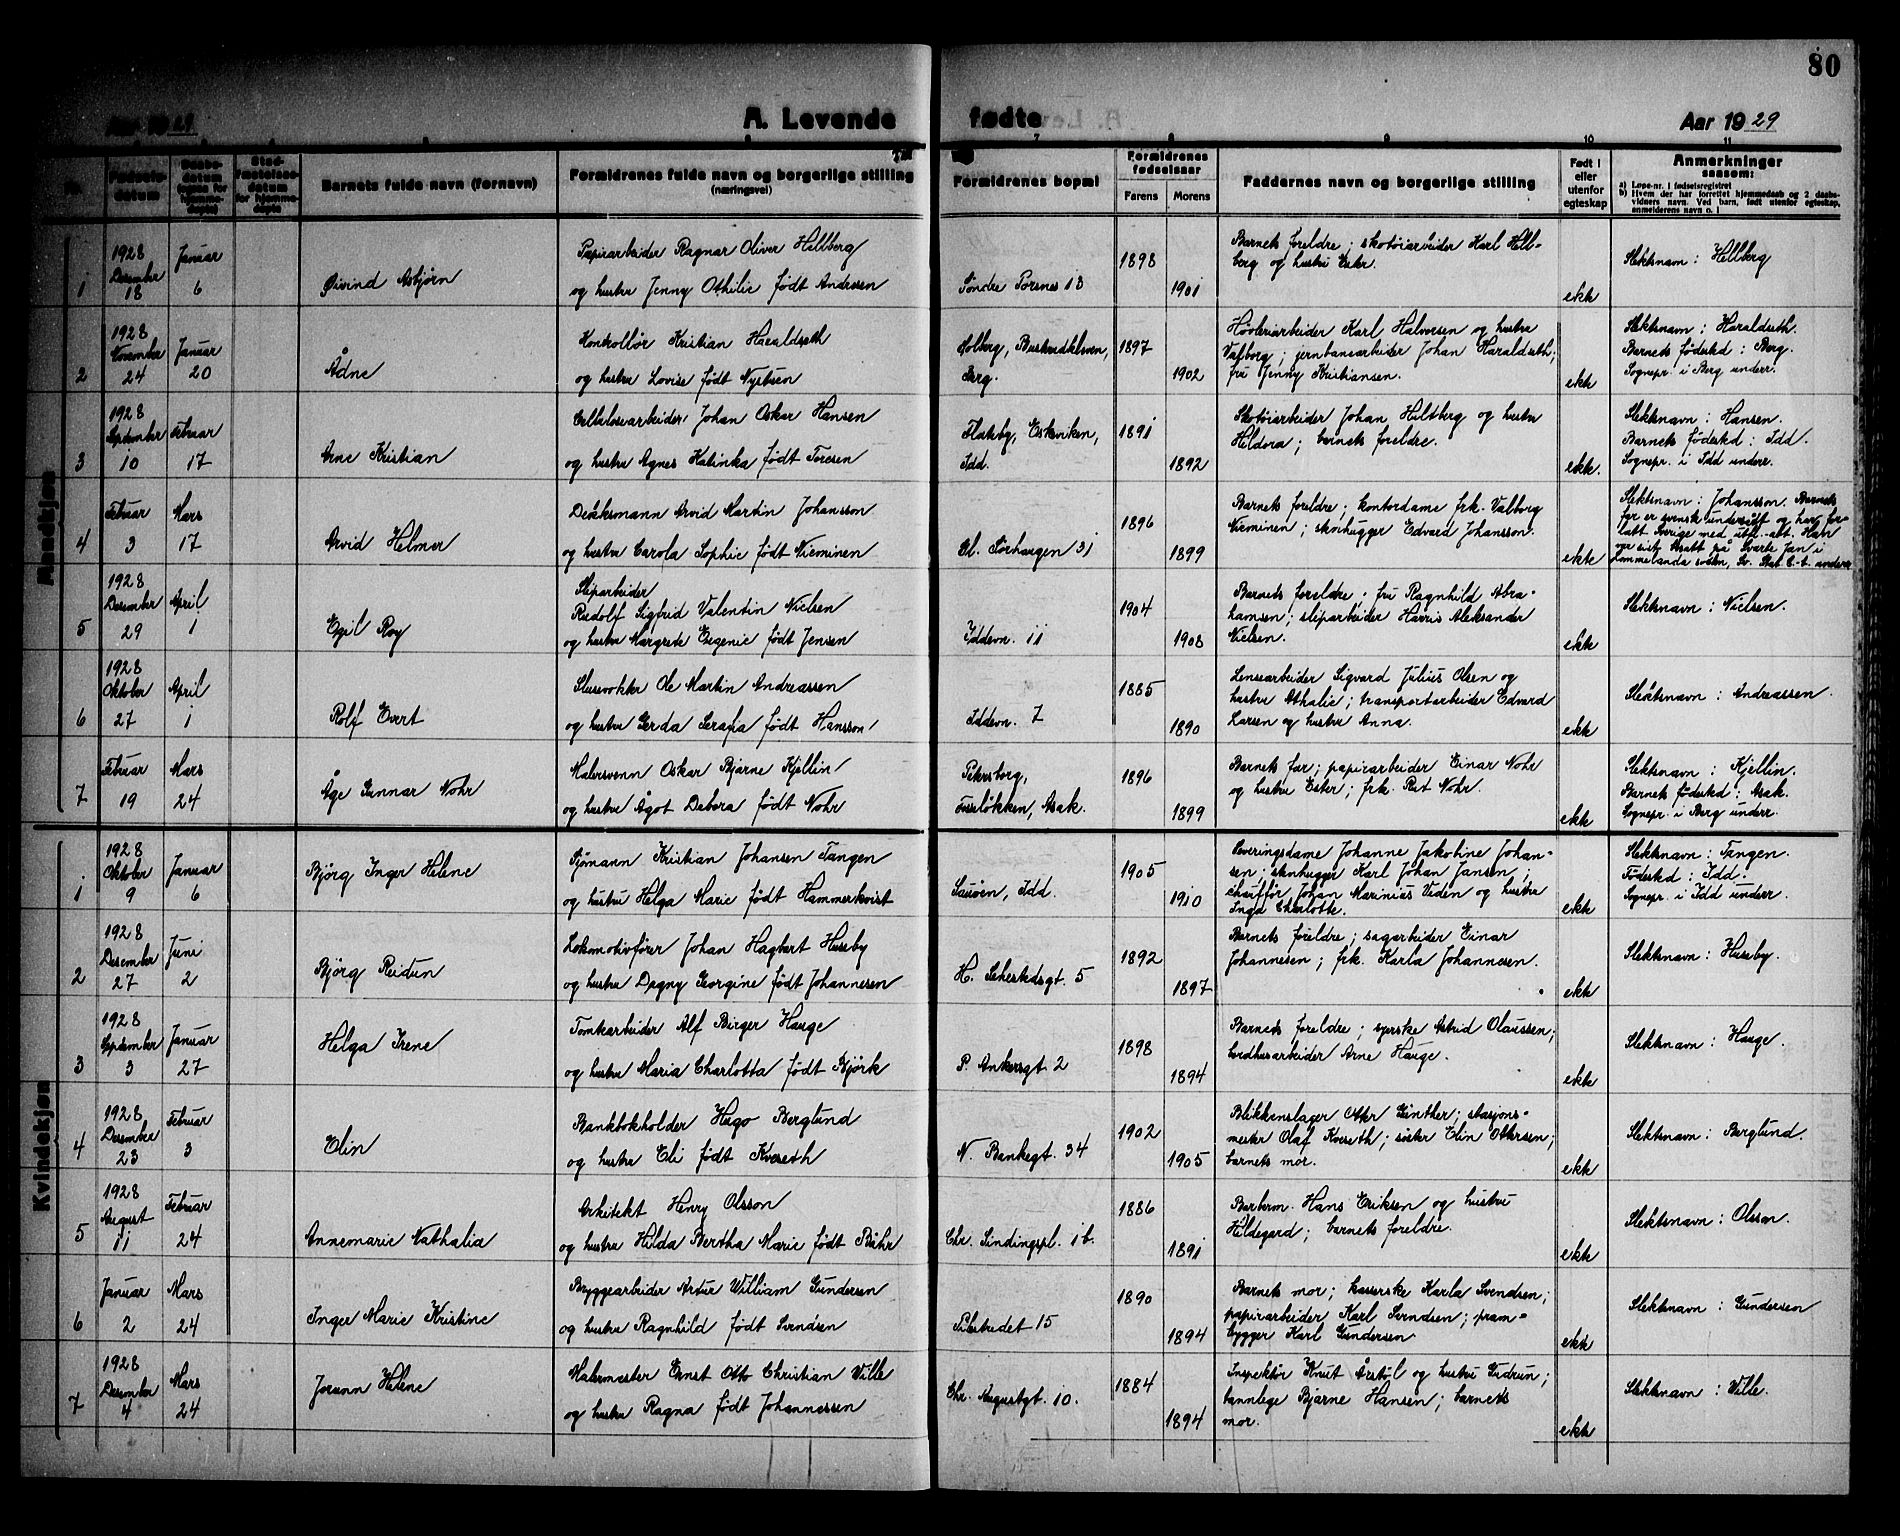 80
Aar 1929
A. Levende
fødte
Aar 1929
7 8 9 10 11
Fødsels-
datum
Daabs-
datum
Barnets fulde navn (fornavn)
Forældrenes fulde navn og borgerlige stilling
(næringsvei)
Forældrenes bopæl
Forældrenes
fødselsaar
Farens Morens
Faddernes navn og borgerlige stilling
Født i
eller
utenfor
egteskap
Anmerkninger
saasom:
a) Løpe-nr. i fødselsregistret
b) Hvem der har forrettet hjemmedaab og 2 daabs-
vidners navn. Ved barn, født utenfor egteskap,
anmelderens navn o. l
Mandkjøn
1
1928
Desember
18
Januar
6
Øivind Asbjørn
Papirarbeider Ragnar Oliver Hellberg
og hustru Jenny Othilie født Andersen
Søndre Porsnes 13
1898
1901
Barnets foreldre; skotøiarbeider Karl Hell-
berg og hustru Ester.
ekte
Slektsnavn: Hellberg
2
1928
November
24
Januar
20
Ådne
Kontrollør Kristian Haraldseth
og hustru Lovise født Nyktsen
Solberg, Buskredskleven,
Berg.
1897
1902
Høvleriarbeider Karl Halvorsen og hustru
Valborg; jernbanearbeider Johan Haraldseth;
fru Jenny Kristiansen.
ekte
Slektsnavn: Haraldseth.
Barnets fødested: Berg.
Sognepr. i Berg underr.
3
1928
September
10
Februar
17
Arne Kristian
Cellulosearbeider Johan Oskar Hansen
og hustru Agnes Katinka født Toresen
Flateby, Eskeviken,
Idd.
1891
1892
Skotøiarbeider Johan Hultberg og hustru
Heldora; barnets foreldre.
ekte.
Slektsnavn: Hansen.
Barnets fødested: Idd.
Sognepr. i Idd underr.
4
Februar
3
Mars
17
Arvid Helmer
Dekksmann Arvid Martin Johansson
og hustru Carola Sophie født Nieminen
Gl. Sørhaugen 31
1896
1899
Barnets foreldre; kontordame frk. Valborg
Nieminen; stenhugger Edvard Johansson.
ekte
Slektsnavn: Johansson. Barnets
far er svensk undersått og har for-
latt Sverige med utfl.-att. Han
var sist bosatt på Svarte Jan i
Lommelanda socken, Sv. Stat. C.-b. underr.
5
1928
Desember
29
April
1
Egil Roy
Sliparbeider
Rudolf Sigfrid Valentin Nielsen
og hustru Margrete Eugenie født Jensen
Iddevn. 11
1904
1908
Barnets foreldre; fru Ragnhild Abra-
hamsen; sliparbeider Harris Aleksander
Nielsen.
ekte
Slektsnavn: Nielsen.
6
1928
Oktober
27
April
1
Rolf Evert
Slusevokter Ole Martin Andreassen
og hustru Gerda Serafia født Hansson
Iddevn. 7
1885
1890
Lensearbeider Sigvard Julius Olsen og
hustru Athalie; transportarbeider Edvard
Larsen og hustru Anna.
ekte
Slektsnavn: Andreassen.
7
Februar
19
Mars
24
Åge Gunnar Nohr
Malersvenn Oskar Bjarne Kjellin
og hustru Ågot Debora født Nohr
Petersborg,
Asak.
1896
1899
Barnets far; papirarbeider Einar Nohr
og hustru Ester; frk. Rut Nohr.
ekte
Slektsnavn: Kjellin.
Barnets fødested: Asak.
Sognepr. i Berg underr.
Kvindekjøn
1
1928
Oktober
9
Januar
6
Bjørg Inger Helene
Sjømann Kristian Johansen Tangen
og hustru Helga Marie født Hammerkvist
Sauøen, Idd.
1905
1910
Serveringsdame Johanne Jakobine Johan-
sen; stenhugger Karl Johan Jansen;
chauffør Johan Marinius Veden og hustru
Inga Charlotte.
ekte
Slektsnavn: Tangen.
Fødested: Idd.
Sognepr. i Idd underr.
2
1928
Desember
27
Juni
2
Bjørg Reidun
Lokomotivfører Johan Hagbart Huseby
og hustru Dagny Georgine født Johannesen
H. Sehestedsgt. 5
1892
1897
Barnets foreldre; sagarbeider Einar
Johannesen; frk. Karla Johannesen.
ekte
Slektsnavn: Huseby.
3
1928
September
3
Januar
27
Helga Irene
Tomtearbeider Alf Birger Hauge
og hustru Maria Charlotta født Björk
P. Ankersgt. 2
1898
1894
Barnets foreldre; syerske Astrid Olaussen;
bedhusarbeider Arne Hauge.
ekte
Slektsnavn: Hauge.
4
1928
Desember
23
Februar
3
Elin
Bankbokholder Hugo Berglund
og hustru Eli født Kveseth
N. Bankegt. 34
1902
1905
Blikkenslager Otter Günther; stasjons-
mester Olaf Kveseth; søster Elin Ottersen;
barnets mor.
ekte
Slektsnavn: Berglund.
5
1928
August
11
Februar
24
Annemarie Nathalia
Arkitekt Henry Olsson
og hustru Hilda Bertha Marie født Bühr
Chr. Sindingspl. 1b.
1886
1891
Barberm. Hans Eriksen og hustru
Hildegard; barnets foreldre.
ekte
Slektsnavn: Olsson.
6
Januar
2
Mars
24
Inger Marie Kristine
Bryggearbeider Artur William Gundersen
og hustru Ragnhild født Svendsen
Tistestredet 15
1890
1894
Barnets mor; kasserske Karla Svendsen;
papirarbeider Karl Svendsen; pram-
bygger Karl Gundersen
ekte
Slektsnavn: Gundersen
7
1928
Desember
4
Mars
24
Jorunn Helene
Malermester Ernst Otto Christian Wille
og hustru Ragna født Johannessen
Chr. Augustsgt. 10.
1884
1894
Inspektør Knut Årstøl og hustru Gudrun;
tannlege Bjarne Hansen; barnets
mor.
ekte
Slektsnavn: Wille.